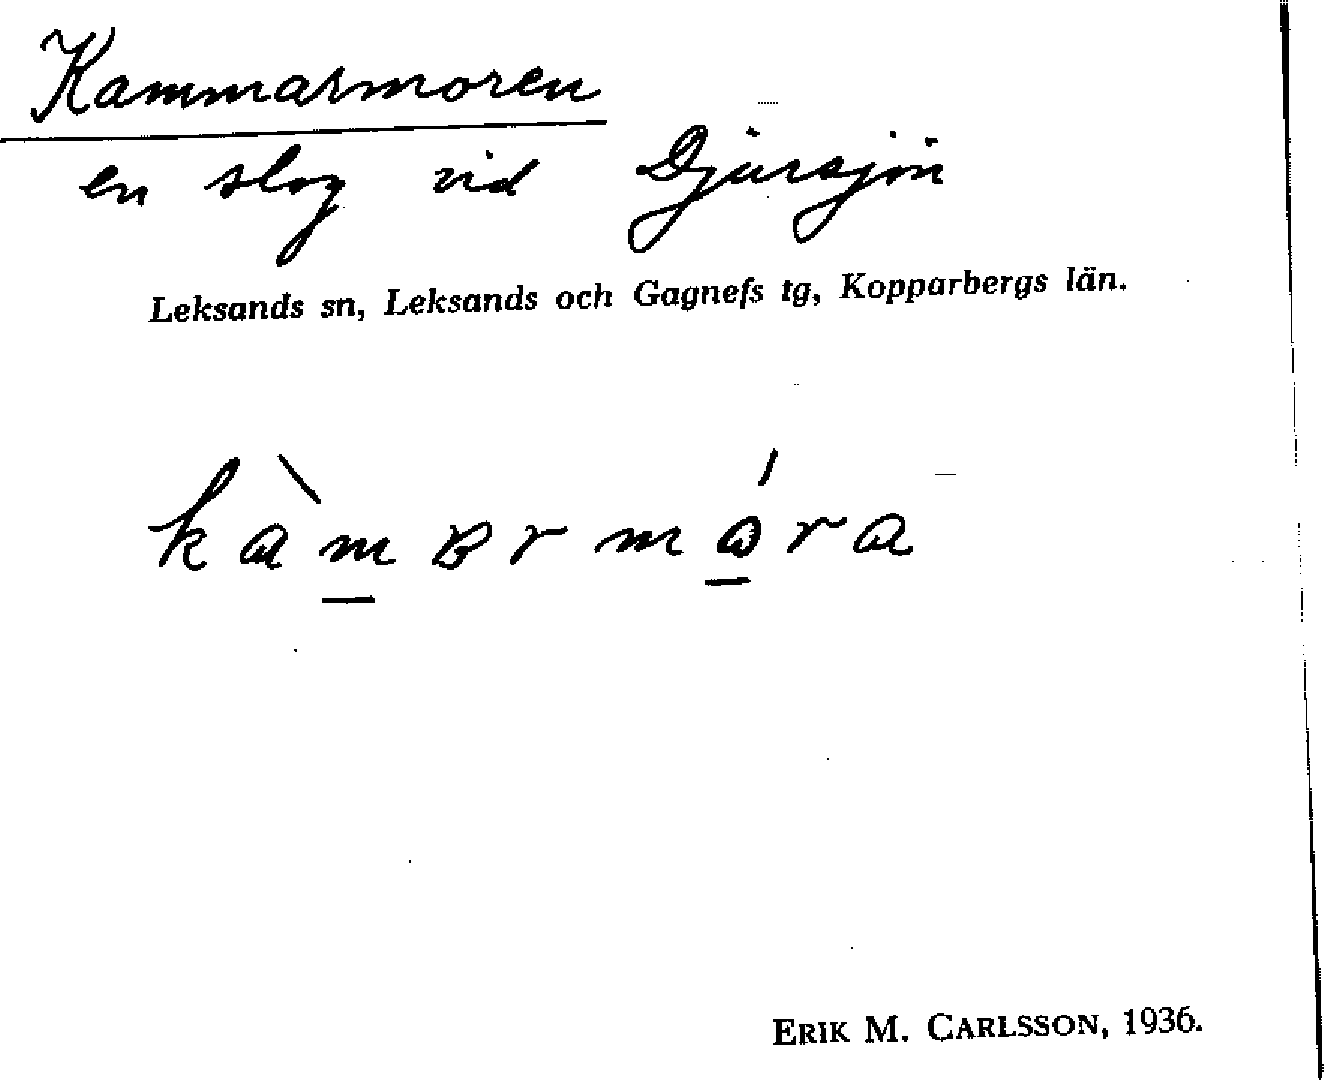 Kammarmoren
en slog vid Djursjön
Leksands sn, Leksands och Gagnefs tg, Kopparbergs län.
ERIK M. CARLSSON, 1936.